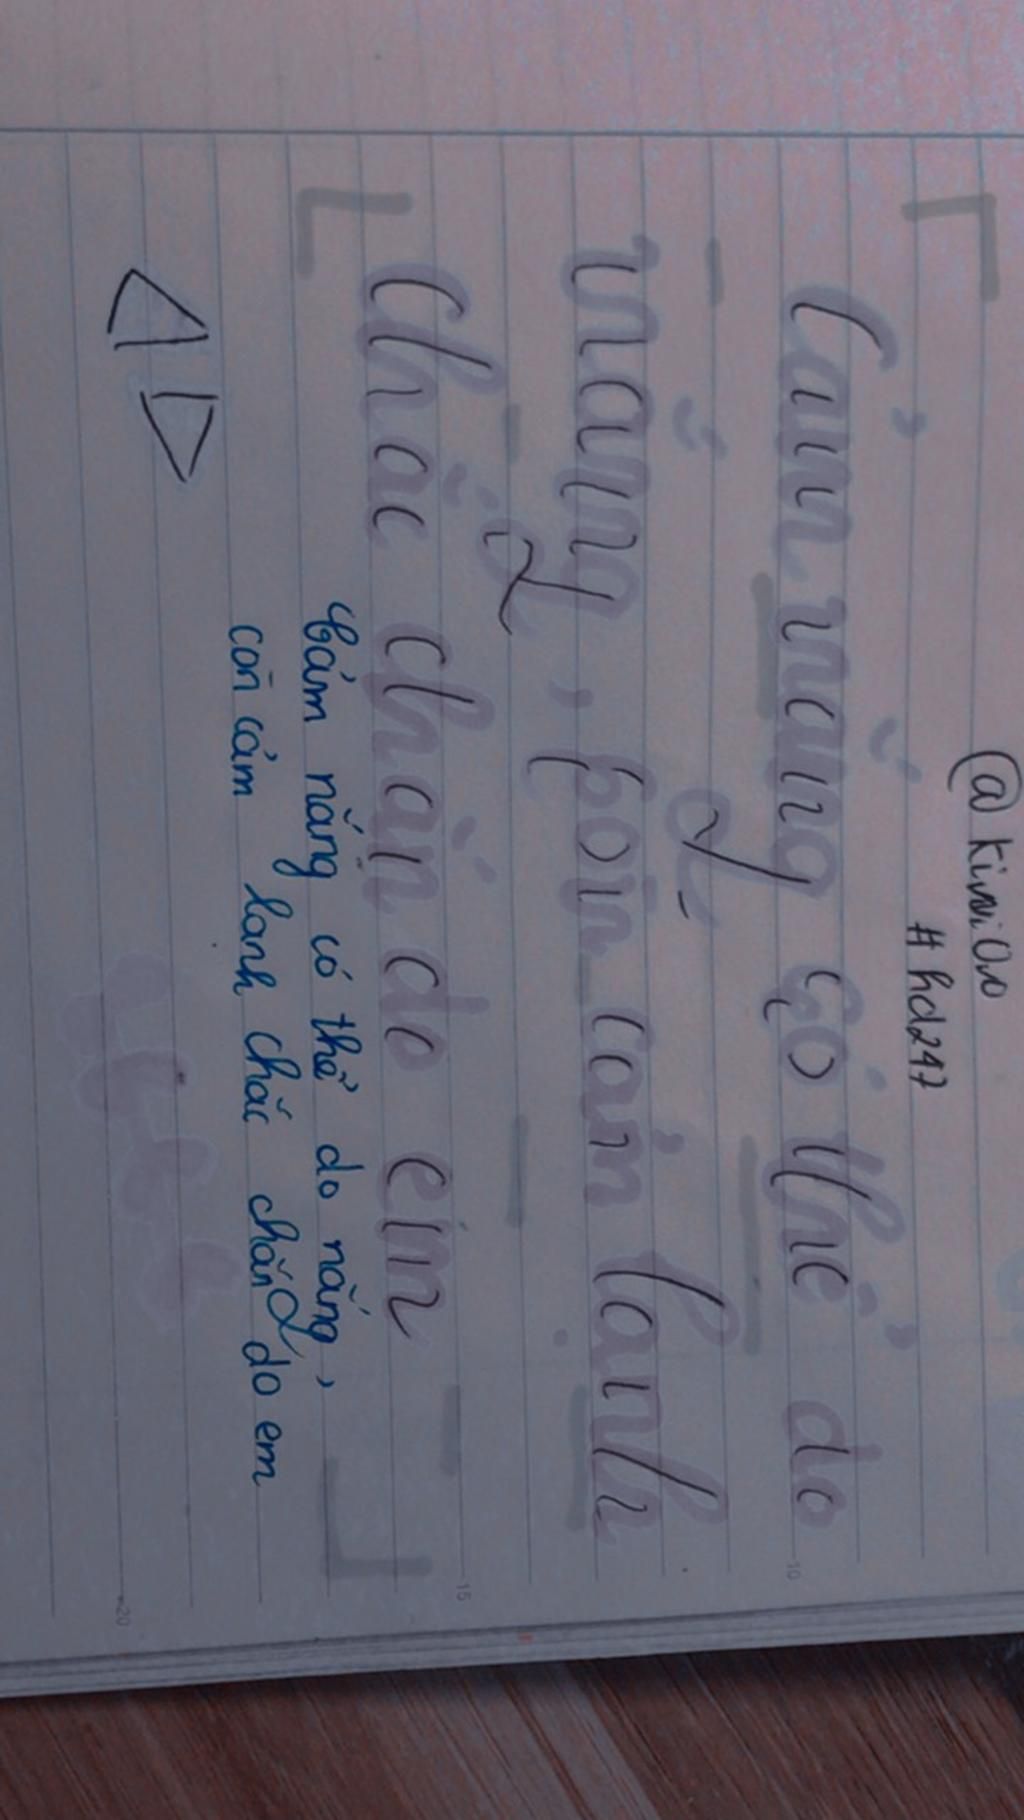 @Kiwi0w
#hd247
Cảm nắng có thể do
nắng, còn cảm lạnh
chắc chắn do em
Cảm nắng có thể do nắng,
còn cảm lạnh chắc chắn do em
10
15
20